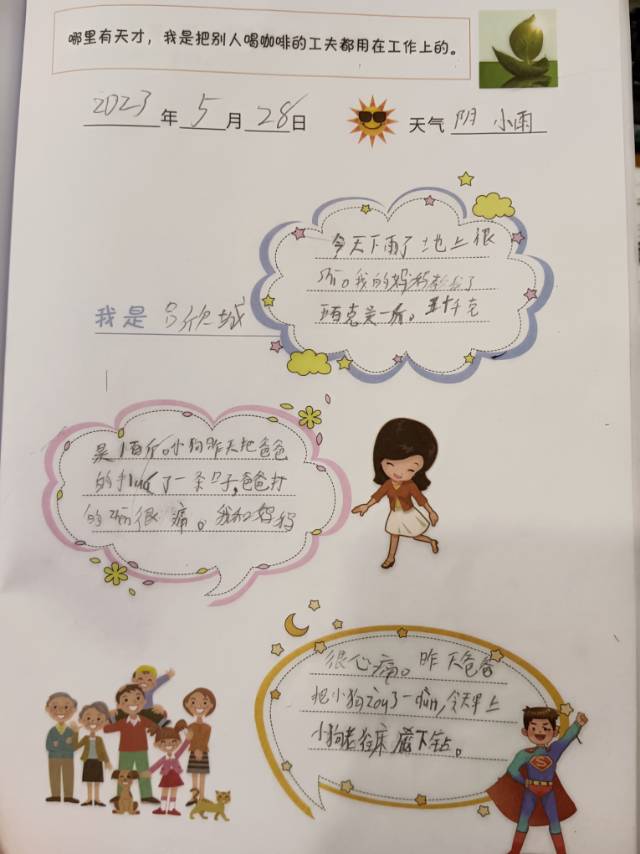 哪里有天才，我是把别人喝咖啡的工夫都用在工作上的。
2023年5月28日 天气 阴 小雨
今天下雨了地上很
我的妈妈
百克是一斤。五十千克
我是 吕欣城
是1百斤。小狗昨天把爸爸
的 了一条口子，爸爸打
的 很痛。我和妈妈
很心痛。昨天爸爸
把小狗zòu了一dùn，今天早上
小狗老往床底下钻。